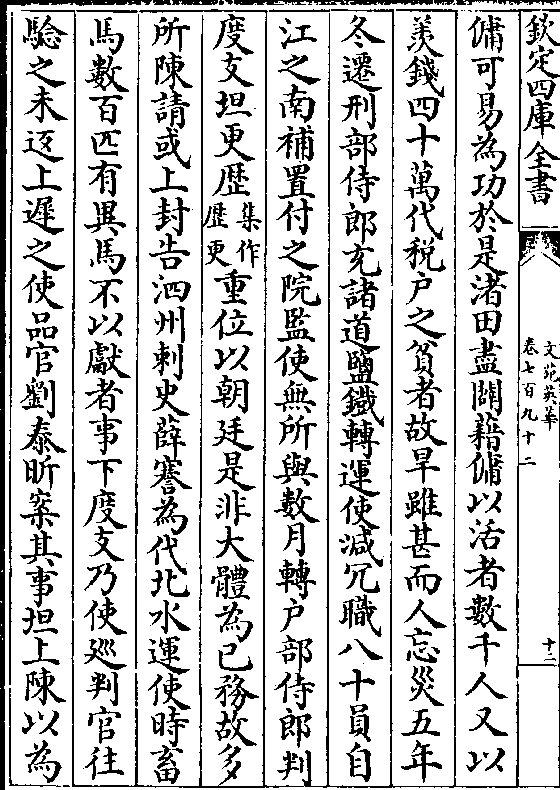 欽定四庫全書
文苑英華
卷七百九十二
十二
傭可易為功於是渚田盡闢籍傭以活者數千人又以
羨錢四十萬代税户之貧者故旱雖甚而人忘災五年
冬遷刑部侍郎充諸道鹽鐵轉運使減冗職八十員自
江之南補置付之院監使無所與數月轉户部侍郎判
度支坦更歴集作歴更重位以朝廷是非大體為已務故多
所陳請或上封告泗州刺史薛謇為代北水運使時畜
馬數百匹有異馬不以獻者事下度支乃使廵判官往
驗之未返上遲之使品官劉泰昕案其事坦上陳以為